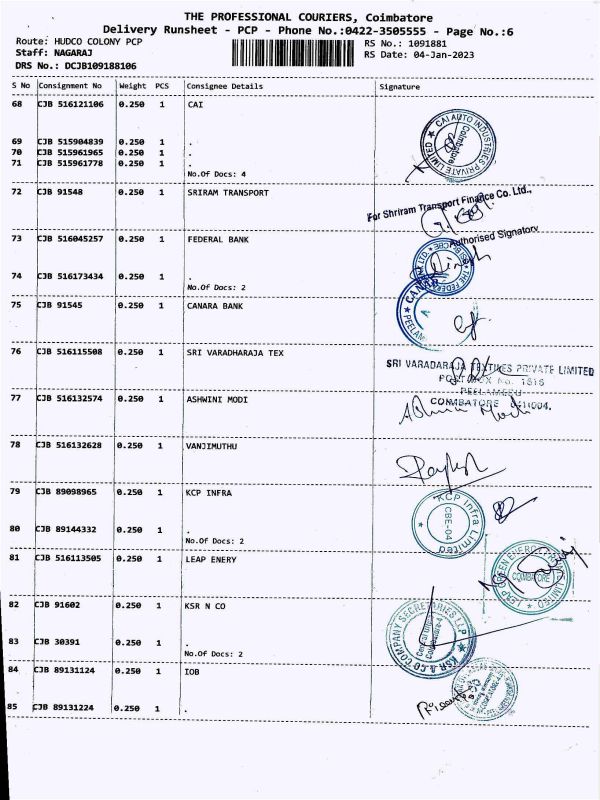 THE PROFESSIONAL COURIERS, Coimbatore
Delivery Runsheet - PCP - Phone No.:0422-3505555 - Page No.:6
Route: HUDCO COLONY PCP
RS No.: 1091881
Staff: NAGARAJ
RS Date: 04-Jan-2023
DRS No.: DCJB109188106
S No Consignment No Weight PCS Consignee Details Signature
68 CJB 516121106 0.250 1 CAI
69 CJB 515904839 0.250 1 .
70 CJB 515961965 0.250 1 .
71 CJB 515961778 0.250 1 .
No.Of Docs: 4
CAI AUTO INDUSTRIES PRIVATE LIMITED
Coimbatore
72 CJB 91548 0.250 1 SRIRAM TRANSPORT
For Shriram Transport Finance Co. Ltd.,
Authorised Signatory
73 CJB 516045257 0.250 1 FEDERAL BANK
74 CJB 516173434 0.250 1 .
No.Of Docs: 2
75 CJB 91545 0.250 1 CANARA BANK
76 CJB 516115508 0.250 1 SRI VARADHARAJA TEX
SRI VARADARAJA TEXTILES PRIVATE LIMITED
POST BOX No. 1616
PEELAMEDU
COIMBATORE 641004.
77 CJB 516132574 0.250 1 ASHWINI MODI
Ashwini Modi
78 CJB 516132628 0.250 1 VANJIMUTHU
79 CJB 89098965 0.250 1 KCP INFRA
KCP Infra Limited
CBE-04
80 CJB 89144332 0.250 1 .
No.Of Docs: 2
81 CJB 516113505 0.250 1 LEAP ENERY
LEAP GREEN ENERGY PRIVATE LIMITED
COIMBATORE
82 CJB 91602 0.250 1 KSR N CO
KSR & CO COMPANY SECRETARIES LLP
83 CJB 30391 0.250 1 .
No.Of Docs: 2
84 CJB 89131124 0.250 1 IOB
85 CJB 89131224 0.250 1 .